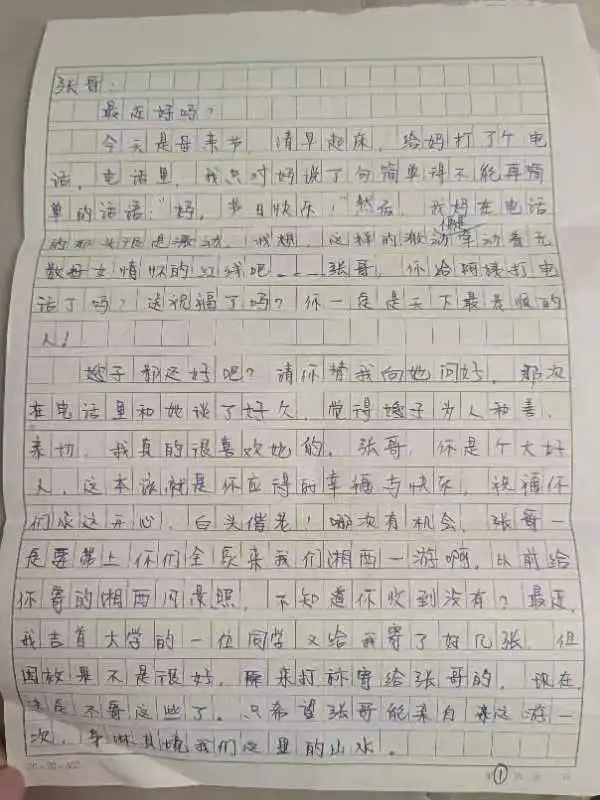 张哥：
最近好吗？
今天是母亲节，清早起床，给妈打了个电
话，电话里，我只对妈说了句简单得不能再简
单的话语：“妈，节日快乐！”然后，我妈在电话
的那头很是激动。我想，这样的激动便是牵动着无
数母女情怀的红线吧……张哥，你给阿姨打电
话了吗？送祝福了吗？你一定是天下最是孝顺的
人！
嫂子都还好吧？请你替我向她问好。那次
在电话里和她谈了好久，觉得嫂子为人和善、
亲切，我真的很喜欢她的。张哥，你是个大好
人，这本该就是你应得的幸福与快乐，祝福你
们永远开心，白头偕老！哪次有机会，张哥一
定要带上你们全家来我们湘西一游啊。以前给
你寄的湘西风景照，不知道你收到没有？最近，
我吉首大学的一位同学又给我寄了好几张，但
因效果不是很好，原来打称寄给张哥的，现在
不寄这些了。只希望张哥能亲自来这游一
次，身淋其境我们这里的山水。
20×20=400
第①页